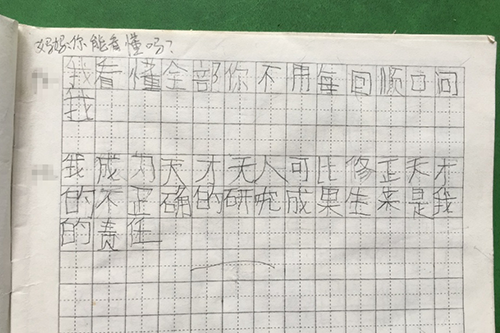 妈妈:你能看懂吗?
我看懂全部你不用每回顺口问
我
我成为天才无人可比修正天才
的不正确的研究成果生来是我
的责任